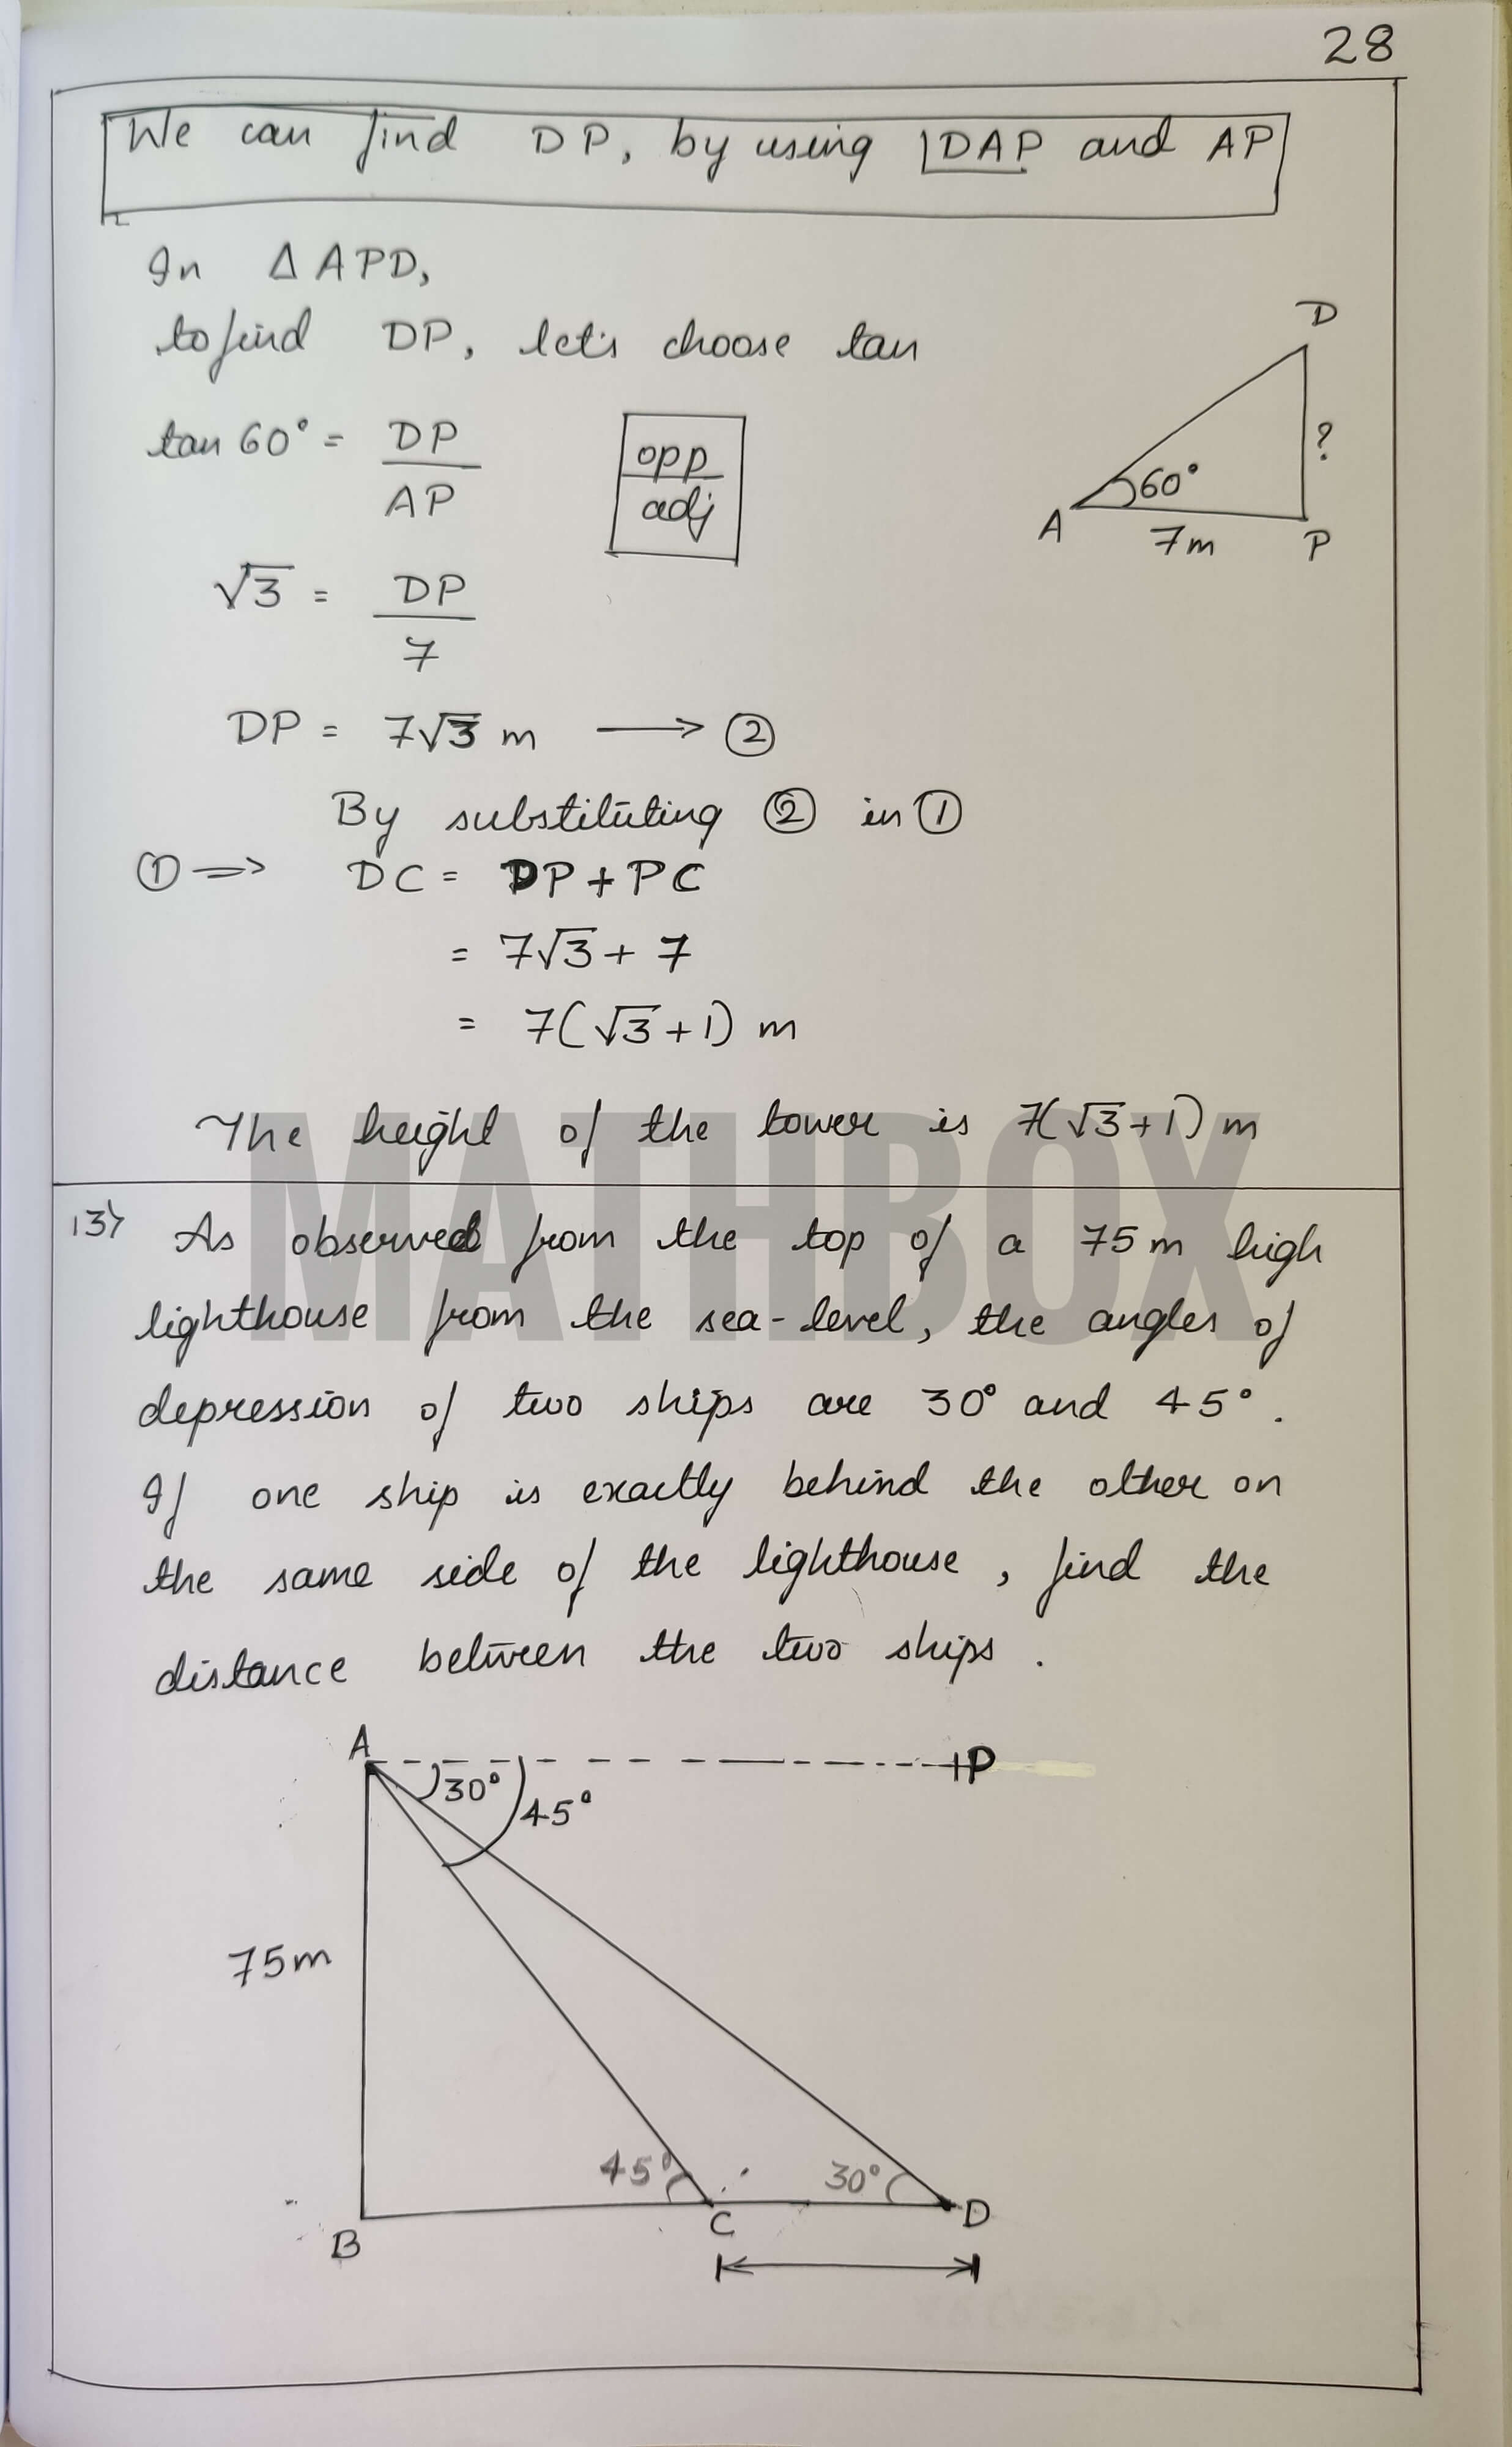 28
We can find DP, by using ∠DAP and AP
In Δ APD,
to find DP, let's choose tan
tan 60° = DP/AP
opp/adj
D
?
60°
A
7m
P
√3 = DP/7
DP = 7√3 m ⟶ ②
By substituting ② in ①
① ⇒ DC = DP + PC
= 7√3 + 7
= 7(√3 + 1) m
The height of the tower is 7(√3+1) m
MATHBOX
13) As observed from the top of a 75 m high
lighthouse from the sea-level, the angles of
depression of two ships are 30° and 45°.
If one ship is exactly behind the other on
the same side of the lighthouse, find the
distance between the two ships.
A
P
30°
45°
75m
45°
30°
B
C
D